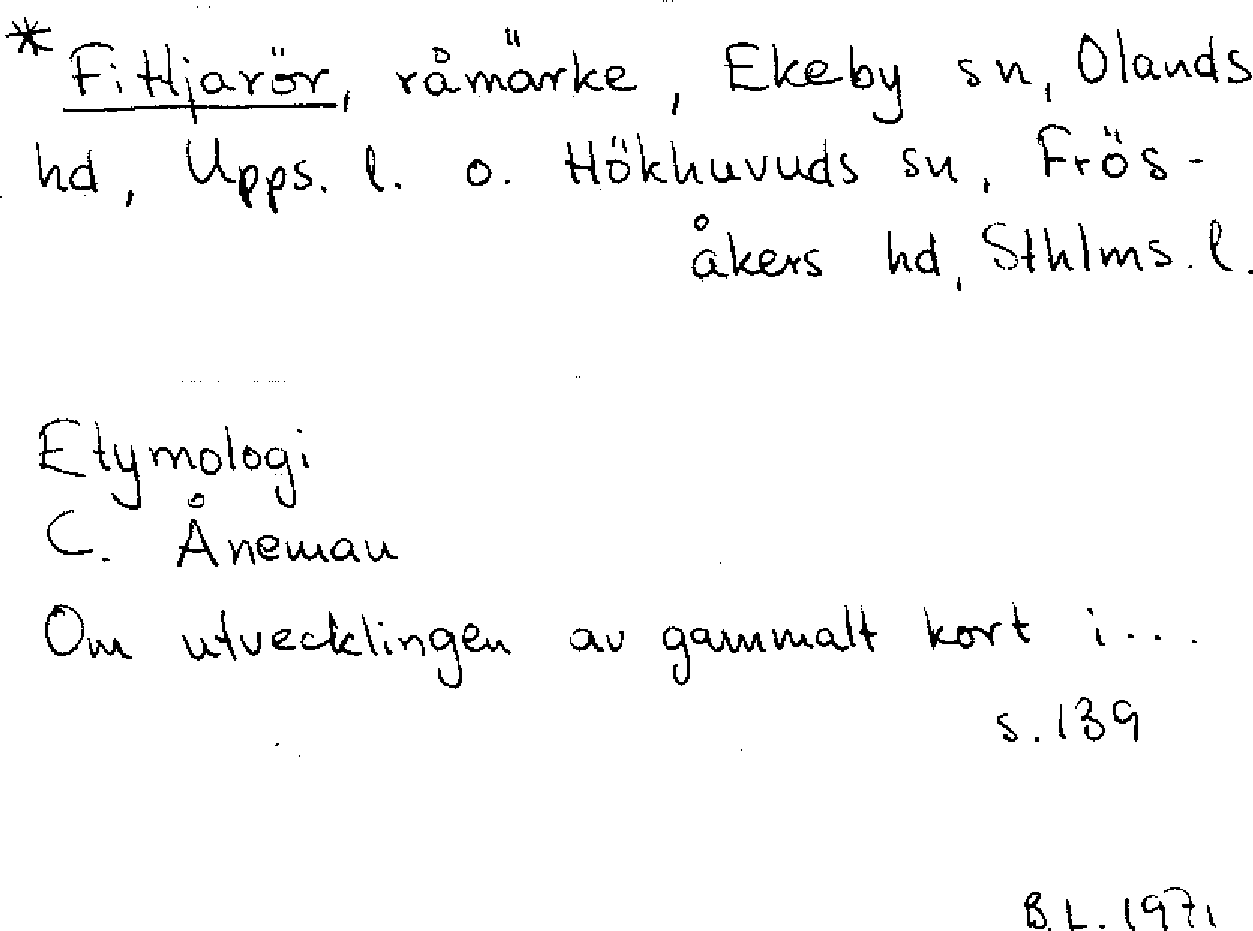 * Fittjarör, råmärke, Ekeby sn, Olands
hd, Upps. l. o. Hökhuvuds sn, Frös-
åkers hd, Sthlms. l.
Etymologi
C. Åneman
Om utvecklingen av gammalt kort i...
s. 139
B.L. 1971